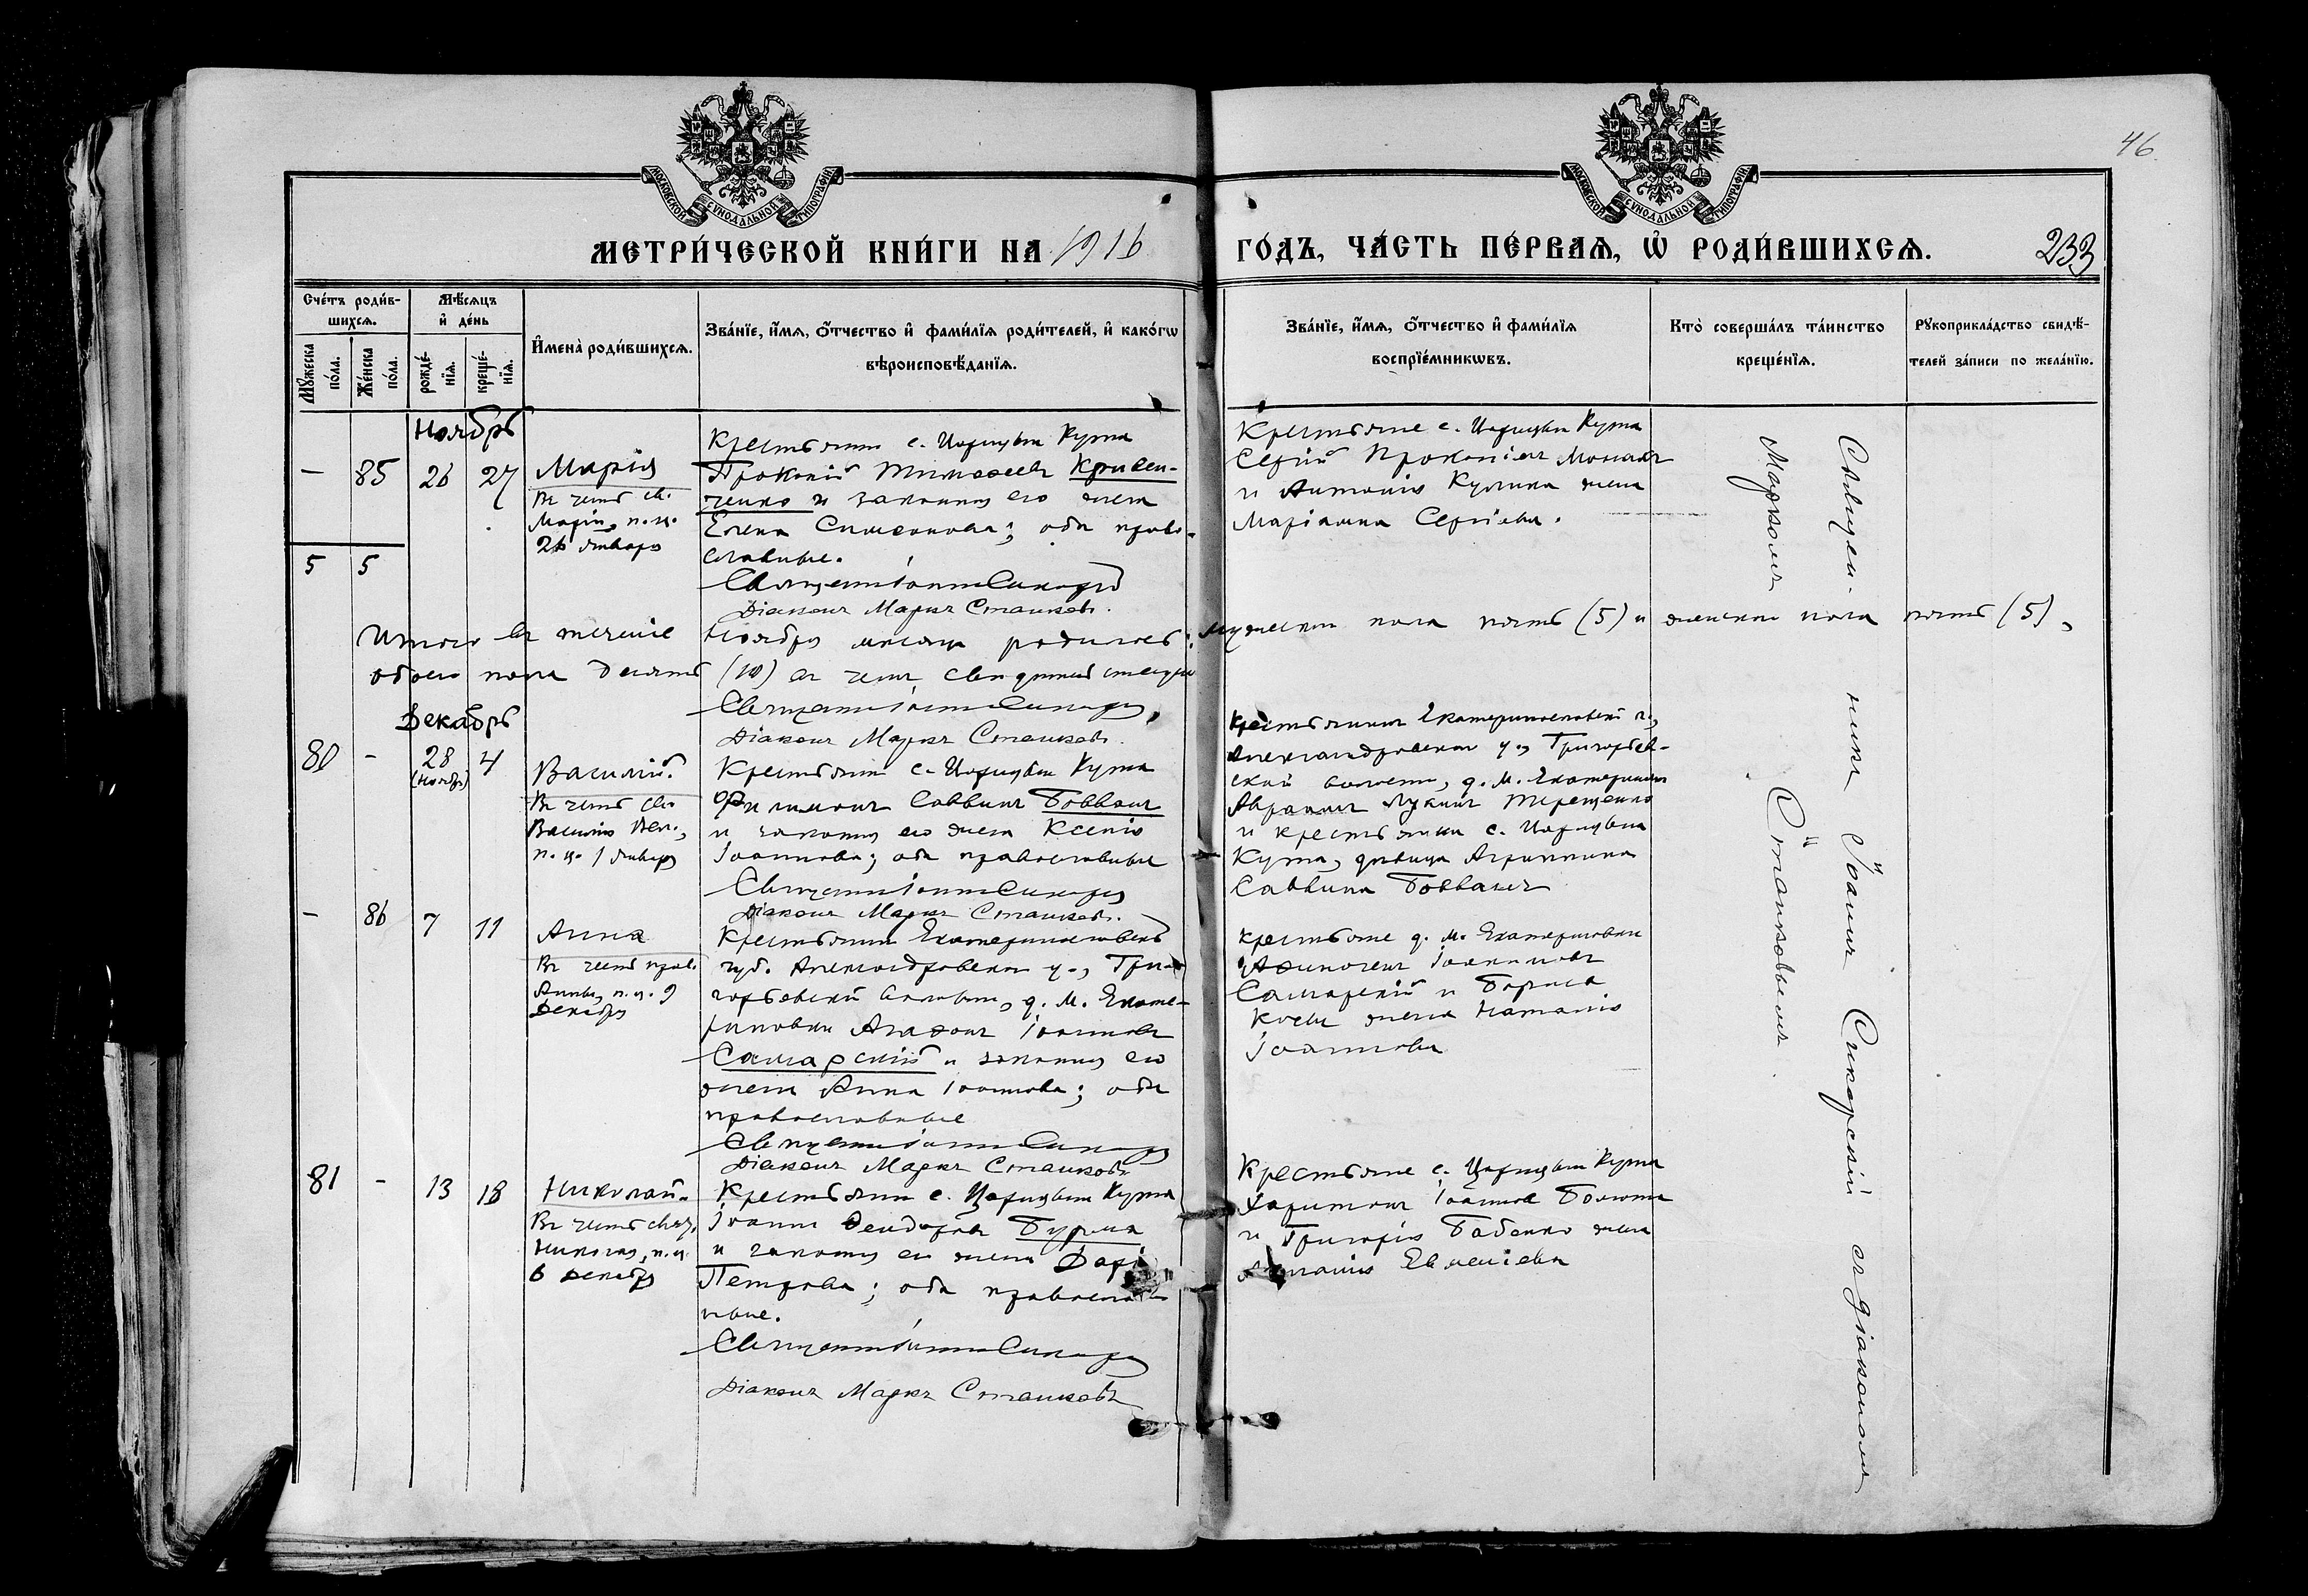 46
МОСКОВСКОЙ СѴНОДАЛЬНОЙ ТИПОГРАФІИ
МОСКОВСКОЙ СѴНОДАЛЬНОЙ ТИПОГРАФІИ
МЕТРИ́ЧЕСКОЙ КНИ́ГИ НА 1916
ГО́ДЪ, ЧА́СТЬ ПЕ́РВАѦ, Ѡ҆ РОДИ́ВШИХСѦ.
233
Сче́тъ роди́в-
шихсѧ.
Мꙋ́жеска по́ла.
Же́нска по́ла.
Мѣ́сѧцъ
и҆ де́нь
рожде́-
нїѧ.
креще́-
нїѧ.
И҆мена̀ роди́вшихсѧ.
Зва́нїе, и҆́мѧ, ѻ҆́тчество и҆ фами́лїѧ роди́телей, и҆ како́гѡ
вѣроисповѣ́данїѧ.
Зва́нїе, и҆́мѧ, ѻ҆́тчество и҆ фами́лїѧ
воспрїе́мникѡвъ.
Кто̀ соверша́лъ та́инство
креще́нїѧ.
Рꙋкоприкла́дство свидѣ́-
телей за́писи по жела́нїю.
Ноябрь
– 85 26 27
Марія
Въ честь св.
Маріи, п. ц.
26 января
Крестьянинъ с. Царицына Кута
Прокопій Тимоѳеевъ Кривен-
ченко и законная его жена
Елена Симеонова; оба право-
славные.
Священникъ Іоаннъ Сикорскій
Діаконъ Маркъ Сташковъ.
Крестьяне с. Царицына Кута
Сергій Прокопіевъ
и Антонія жена
Маріамна Сергіева.
5 5
Итого въ теченіе Ноября мѣсяца родилось: мужеска пола пять (5) и женска пола пять (5),
обоего пола десять (10) въ чемъ свидѣтельствуемъ
Священникъ Іоаннъ Сикорскій,
Діаконъ Маркъ Сташковъ.
Декабрь
80 – 28 4
(Ноябр)
Василій.
Въ честь св.
Василія Вел.,
п. ц. 1 января
Крестьянинъ с. Царицына Кута
Филимонъ Саввинъ Бовванъ
и законная его жена Ксенія
Іоаннова; оба православные
Священникъ Іоаннъ Сикорскій
Діаконъ Маркъ Сташковъ.
Крестьянинъ Екатеринославской г.,
Александровскаго у., Григорьев-
ской волости, д. М. Екатериновки
Авраамъ Лукинъ Терещенко
и крестьянка с. Царицына
Кута, дѣвица Агриппина
Саввина Бовванъ
– 86 7 11
Анна
Въ честь прав.
Анны, п. ц. 9
декабря
Крестьянинъ Екатеринославской
губ. Александровскаго у., Гри-
горьевской волости, д. М. Екате-
риновки Агаѳонъ Іоанновъ
Самарскій и законная его
жена Анна Іоаннова; оба
православные
Священникъ Іоаннъ Сикорскій
Діаконъ Маркъ Сташковъ
Крестьяне д. М. Екатериновки
Аѳиногенъ Іоакимовъ
Самарскій и Бориса
жена Наталія
Іоаннова
81 – 13 18
Николай.
Въ честь свят.
Николая, п. ц.
6 декабря
Крестьянинъ с. Царицына Кута
Іоаннъ Ѳеодоровъ Бурма
и законная его жена Дарія
Петрова; оба православ-
ные.
Священникъ Іоаннъ Сикорскій
Діаконъ Маркъ Сташковъ
Крестьяне с. Царицына Кута
Харитонъ Іоанновъ
и Григорія Бабенко жена
Евменіева
Священникъ Іоаннъ Сикорскій съ діакономъ
Маркомъ Сташковымъ